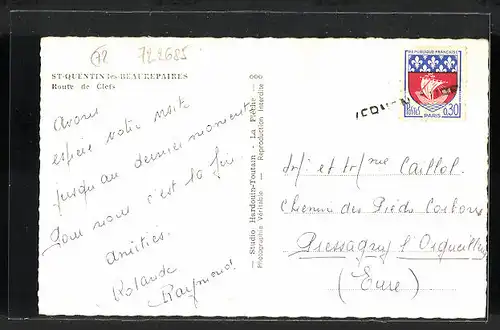 72
722685
ST-QUENTIN-les-BEAUREPAIRES
Route de Clefs
Avons
espéré votre visite
jusqu'au dernier moment
Pour nous c'est la fin
Amitiés.
Rolande
Raymond.
— Studio Hardouin-Toutain - La Flèche —
Photographie Véritable — Reproduction Interdite
REPUBLIQUE FRANÇAISE
POSTES 0,30
PARIS
Mr et Mme Caillol.
Chemin des Pieds
Pressagny l'Orgueilleux
(Eure)